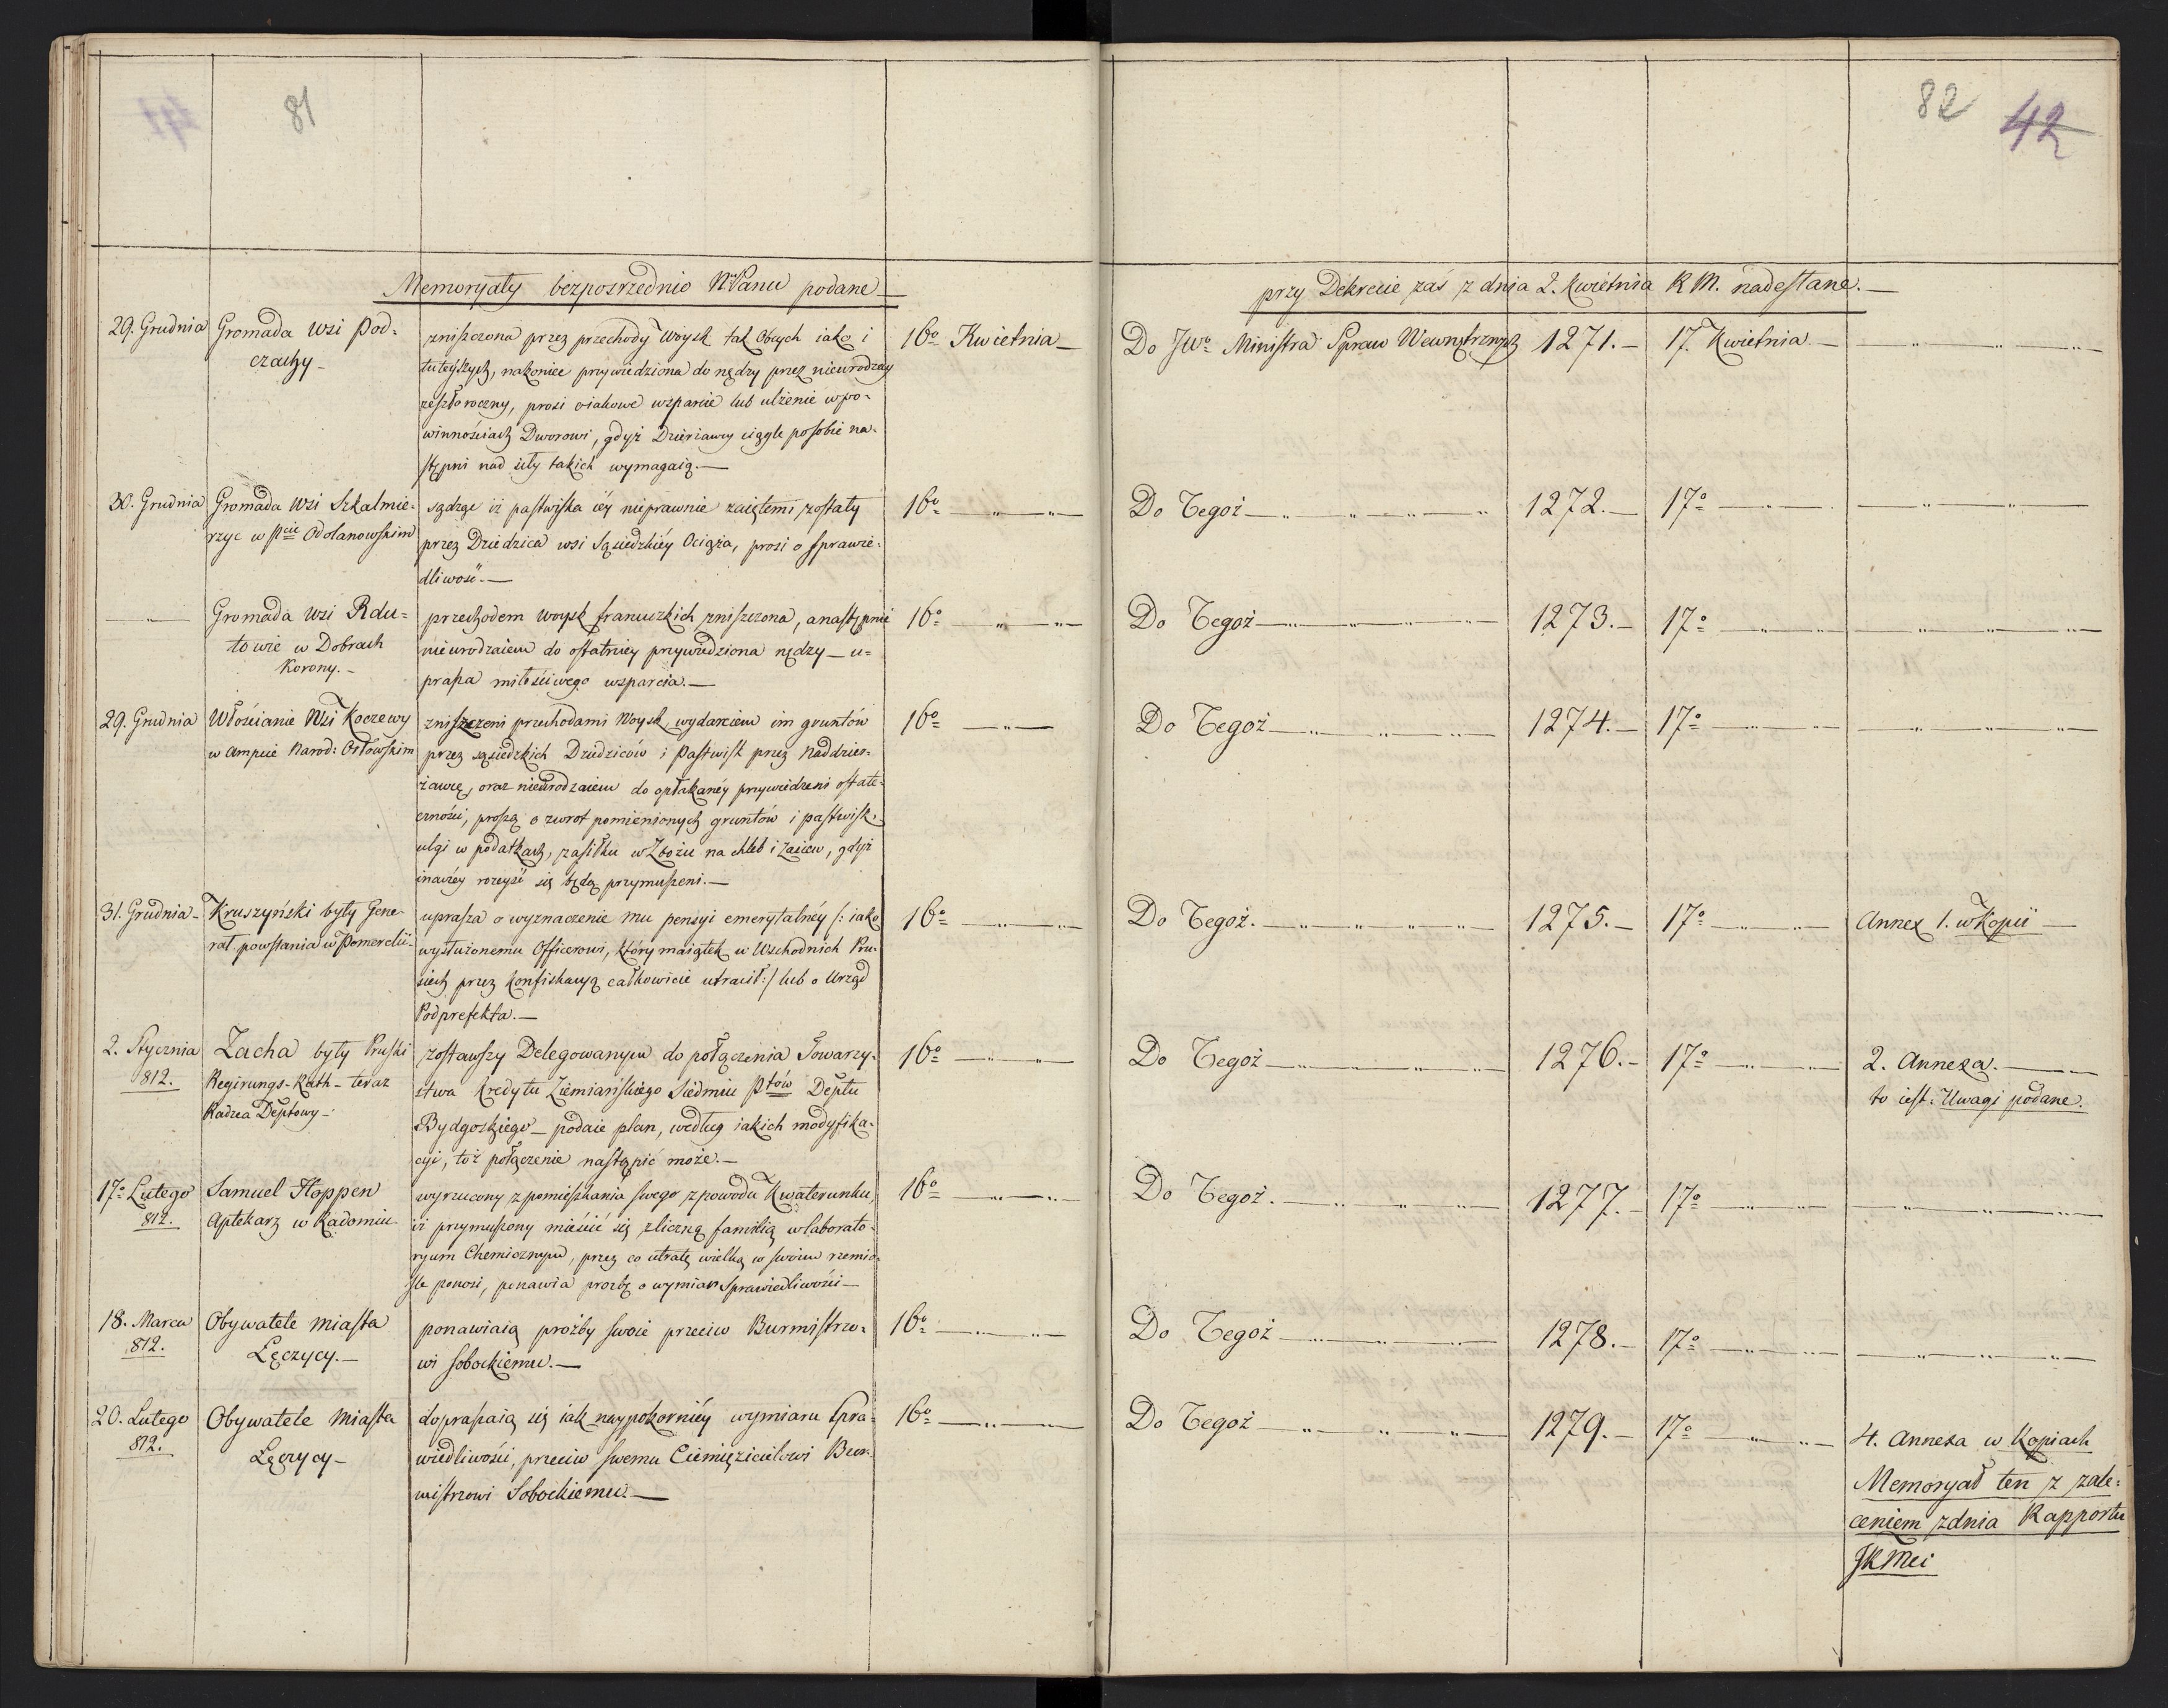 81
82 42
Memoryały bezpośrzednio N. Panu podane
przy Dekrecie zaś z dnia 2. Kwietnia R M. nadesłane.—
29. Grudnia Gromada wsi Pod=
czachy—
zniszczona przez przechody woysk tak Obcych iako i
tuteyszych, nakoniec przywiedziona do nędzy przez nieurodzay
zeszłoroczny, prosi o iakowe wsparcie lub ulżenie w po=
winnościach Dworowi, gdyż Dzierżawcy ciągle po sobie na=
stępni nad siły takich wymagaią.—
16o Kwietnia—
Do JWo Ministra Spraw Wewnętrznych 1271.— 17. Kwietnia—
30. Grudnia Gromada wsi Szkalmie=
rzyc w Pcie Odolanowskim
sądząc iż pastwiska iéy nieprawnie zaiętemi zostały
przez Dziedzica wsi Sąsiedzkiéy Ociąża, prosi o sprawie=
dliwość.—
16o — " — " —
Do Tegoż — " — " — 1272.— 17o — " —
— " — Gromada wsi Rdu=
towie w Dobrach
Korony.—
przechodem woysk francuzkich zniszczona, a następnie
nieurodzaiem do ostatniey przywiedziona nędzy — u=
prasza miłościwego wsparcia.—
16o — " — " —
Do Tegoż — " — " — 1273.— 17o — " —
29. Grudnia Włościanie Wsi Koczewy
w Ampcie Narod: Orłowskim
zniszczeni przechodami Woysk, wydarciem im gruntów
przez sąsiedzkich Dziedziców i Pastwisk przez Naddzier=
żawcę, oraz nieurodzaiem do opłakanéy przywiedzeni ostate=
czności, proszą o zwrot pomienionych gruntów i pastwisk,
ulgi w podatkach, zasiłku w Zbożu na chleb i zasiew, gdyż
inaczéy rozeyść się będą przymuszeni.—
16o — " —
Do Tegoż — " — " — 1274.— 17o — " —
31. Grudnia— Kruszyński były Gene=
rał powstania w Pomerelii—
uprasza o wyznaczenie mu pensyi emerytalnéy /: iako
wysłużonemu Officerowi, który maiątek w Wschodnich Pru=
siech przez konfiskacyą całkowicie utracił :/ lub o Urząd
Podprefekta.—
16o — " —
Do Tegoż. — " — " — 1275.— 17o — " — Annex 1. w Kopii—
2. Stycznia
812.
Zacha były Pruski
Regirungs-Rath— teraz
Radzca Deptowy—
zostawszy Delegowanym do połączenia Towarzy=
stwa Kredytu Ziemiańskiego Siedmiu Ptów Deptu
Bydgoskiego— podaie plan, według iakich modyfika=
cyi, toż połączenie nastąpić może.—
16o — " —
Do Tegoż — " — " — 1276.— 17o — " — 2. Annexa.—
to iest: Uwagi podane.
17o Lutego
812.
Samuel Hoppen
Aptekarz w Radomiu
wyrzucony z pomieszkania swego z powodu Kwaterunku,
iż przymuszony mieścić się z liczną familią w laborato=
ryum Chemicznym, przez co utratę wielką w swoim rzemio=
śle ponosi, ponawia prozbę o wymiar Sprawiedliwości—
16o — " —
Do Tegoż. — " — " — 1277.— 17o — " —
18. Marca
812.
Obywatele miasta
Łęczycy.—
ponawiaią prożby swoie przeciw Burmistrzo=
wi Sobockiemu.—
16o — " —
Do Tegoż — " — " — 1278.— 17o — " —
20. Lutego
812.
Obywatele Miasta
Łęczycy—
dopraszaią się iak naypokorniéy wymiaru Spra=
wiedliwości, przeciw swemu Ciemiężicielowi Bur=
mistrzowi Sobockiemu.—
16o — " —
Do Tegoż — " — " — 1279.— 17o — " — 4. Annexa w Kopiach
Memoryał ten z zale=
ceniem zdnia Rapportu
JKMci